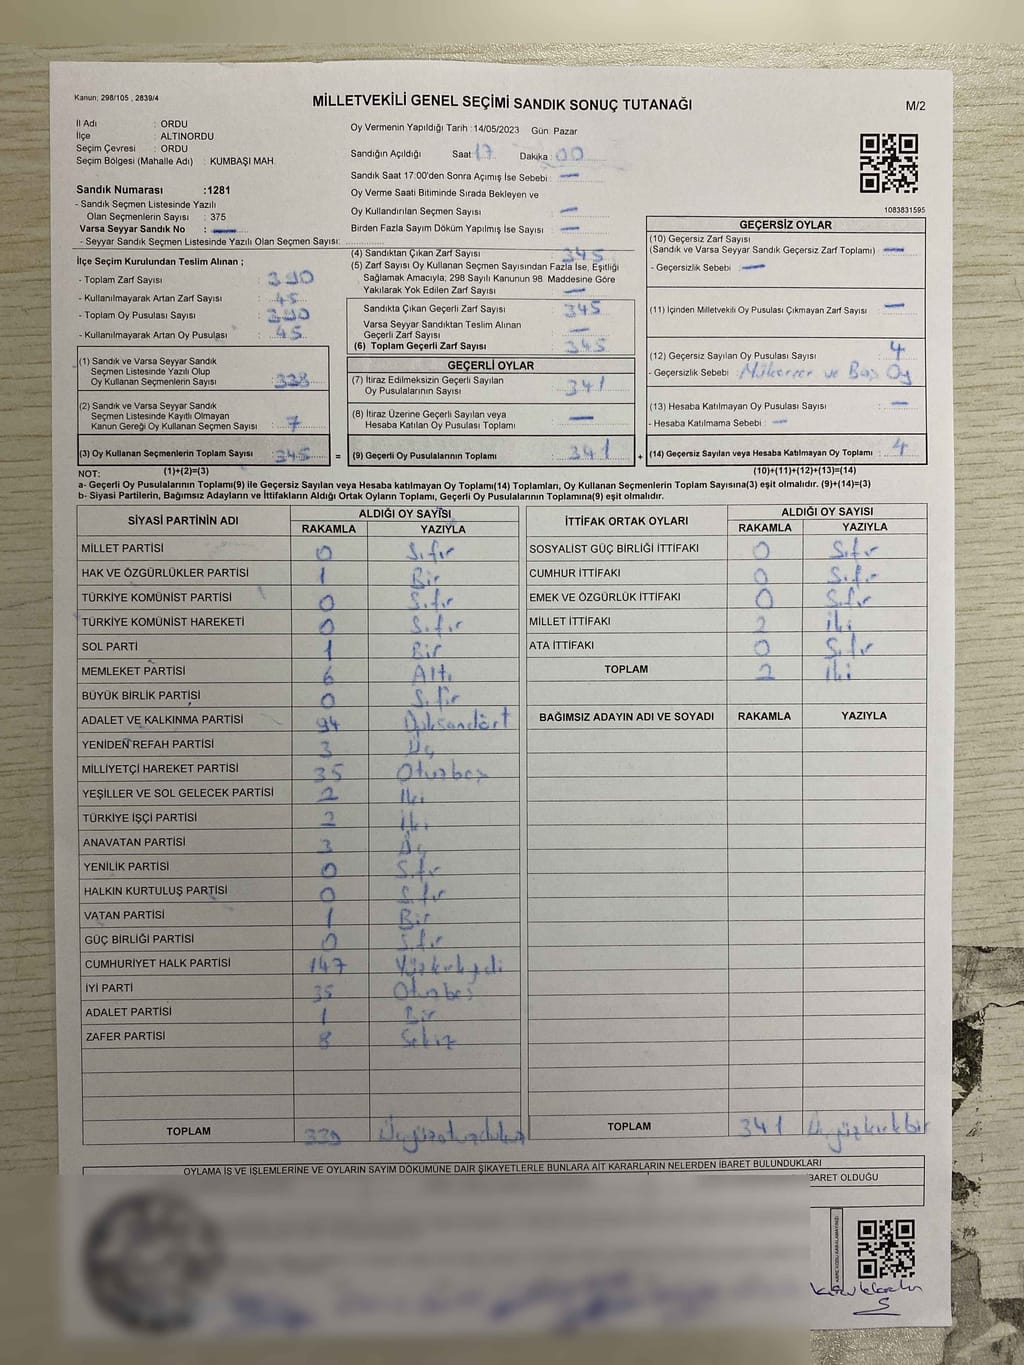 Kanun; 298/105 , 2839/4
MİLLETVEKİLİ GENEL SEÇİMİ SANDIK SONUÇ TUTANAĞI
M/2
İl Adı : ORDU
İlçe : ALTINORDU
Seçim Çevresi : ORDU
Seçim Bölgesi (Mahalle Adı) : KUMBAŞI MAH.
Sandık Numarası :1281
- Sandık Seçmen Listesinde Yazılı
Olan Seçmenlerin Sayısı : 375
Varsa Seyyar Sandık No : —
- Seyyar Sandık Seçmen Listesinde Yazılı Olan Seçmen Sayısı:
İlçe Seçim Kurulundan Teslim Alınan ;
- Toplam Zarf Sayısı : 390
- Kullanılmayarak Artan Zarf Sayısı : 45
- Toplam Oy Pusulası Sayısı : 390
- Kullanılmayarak Artan Oy Pusulası : 45
(1) Sandık ve Varsa Seyyar Sandık
Seçmen Listesinde Yazılı Olup
Oy Kullanan Seçmenlerin Sayısı : 338
(2) Sandık ve Varsa Seyyar Sandık
Seçmen Listesinde Kayıtlı Olmayan
Kanun Gereği Oy Kullanan Seçmen Sayısı : 7
(3) Oy Kullanan Seçmenlerin Toplam Sayısı : 345
Oy Vermenin Yapıldığı Tarih :14/05/2023 Gün: Pazar
Sandığın Açıldığı Saat: 17 Dakika : 00
Sandık Saat 17:00'den Sonra Açımış İse Sebebi : —
Oy Verme Saati Bitiminde Sırada Bekleyen ve
Oy Kullandırılan Seçmen Sayısı : —
Birden Fazla Sayım Döküm Yapılmış İse Sayısı : —
(4) Sandıktan Çıkan Zarf Sayısı : 345
(5) Zarf Sayısı Oy Kullanan Seçmen Sayısından Fazla İse, Eşitliği
Sağlamak Amacıyla; 298 Sayılı Kanunun 98. Maddesine Göre
Yakılarak Yok Edilen Zarf Sayısı : —
Sandıkta Çıkan Geçerli Zarf Sayısı : 345
Varsa Seyyar Sandıktan Teslim Alınan
Geçerli Zarf Sayısı : —
(6) Toplam Geçerli Zarf Sayısı : 345
GEÇERLİ OYLAR
(7) İtiraz Edilmeksizin Geçerli Sayılan
Oy Pusulalarının Sayısı : 341
(8) İtiraz Üzerine Geçerli Sayılan veya
Hesaba Katılan Oy Pusulası Toplamı : —
= (9) Geçerli Oy Pusulalarının Toplamı : 341 +
1083831595
GEÇERSİZ OYLAR
(10) Geçersiz Zarf Sayısı
(Sandık ve Varsa Seyyar Sandık Geçersiz Zarf Toplamı) : —
- Geçersizlik Sebebi : —
(11) İçinden Milletvekili Oy Pusulası Çıkmayan Zarf Sayısı : —
(12) Geçersiz Sayılan Oy Pusulası Sayısı : 4
- Geçersizlik Sebebi : Mükerrer ve Boş Oy
(13) Hesaba Katılmayan Oy Pusulası Sayısı : —
- Hesaba Katılmama Sebebi : —
(14) Geçersiz Sayılan veya Hesaba Katılmayan Oy Toplamı : 4
NOT: (1)+(2)=(3) (10)+(11)+(12)+(13)=(14)
a- Geçerli Oy Pusulalarının Toplamı(9) ile Geçersiz Sayılan veya Hesaba katılmayan Oy Toplamı(14) Toplamları, Oy Kullanan Seçmenlerin Toplam Sayısına(3) eşit olmalıdır. (9)+(14)=(3)
b- Siyasi Partilerin, Bağımsız Adayların ve İttifakların Aldığı Ortak Oyların Toplamı, Geçerli Oy Pusulalarının Toplamına(9) eşit olmalıdır.
SİYASİ PARTİNİN ADI ALDIĞI OY SAYISI
RAKAMLA YAZIYLA
MİLLET PARTİSİ 0 Sıfır
HAK VE ÖZGÜRLÜKLER PARTİSİ 1 Bir
TÜRKİYE KOMÜNİST PARTİSİ 0 Sıfır
TÜRKİYE KOMÜNİST HAREKETİ 0 Sıfır
SOL PARTİ 1 Bir
MEMLEKET PARTİSİ 6 Altı
BÜYÜK BİRLİK PARTİSİ 0 Sıfır
ADALET VE KALKINMA PARTİSİ 94 Doksandört
YENİDEN REFAH PARTİSİ 3 Üç
MİLLİYETÇİ HAREKET PARTİSİ 35 Otuzbeş
YEŞİLLER VE SOL GELECEK PARTİSİ 2 İki
TÜRKİYE İŞÇİ PARTİSİ 2 İki
ANAVATAN PARTİSİ 3 Üç
YENİLİK PARTİSİ 0 Sıfır
HALKIN KURTULUŞ PARTİSİ 0 Sıfır
VATAN PARTİSİ 1 Bir
GÜÇ BİRLİĞİ PARTİSİ 0 Sıfır
CUMHURİYET HALK PARTİSİ 147 Yüzkırkyedi
İYİ PARTİ 35 Otuzbeş
ADALET PARTİSİ 1 Bir
ZAFER PARTİSİ 8 Sekiz
TOPLAM 339 Üçyüzotuzdokuz
İTTİFAK ORTAK OYLARI ALDIĞI OY SAYISI
RAKAMLA YAZIYLA
SOSYALİST GÜÇ BİRLİĞİ İTTİFAKI 0 Sıfır
CUMHUR İTTİFAKI 0 Sıfır
EMEK VE ÖZGÜRLÜK İTTİFAKI 0 Sıfır
MİLLET İTTİFAKI 2 İki
ATA İTTİFAKI 0 Sıfır
TOPLAM 2 İki
BAĞIMSIZ ADAYIN ADI VE SOYADI RAKAMLA YAZIYLA
TOPLAM 341 Üçyüzkırkbir
OYLAMA İŞ VE İŞLEMLERİNE VE OYLARIN SAYIM DÖKÜMÜNE DAİR ŞİKAYETLERLE BUNLARA AİT KARARLARIN NELERDEN İBARET BULUNDUKLARI
BARET OLDUĞU